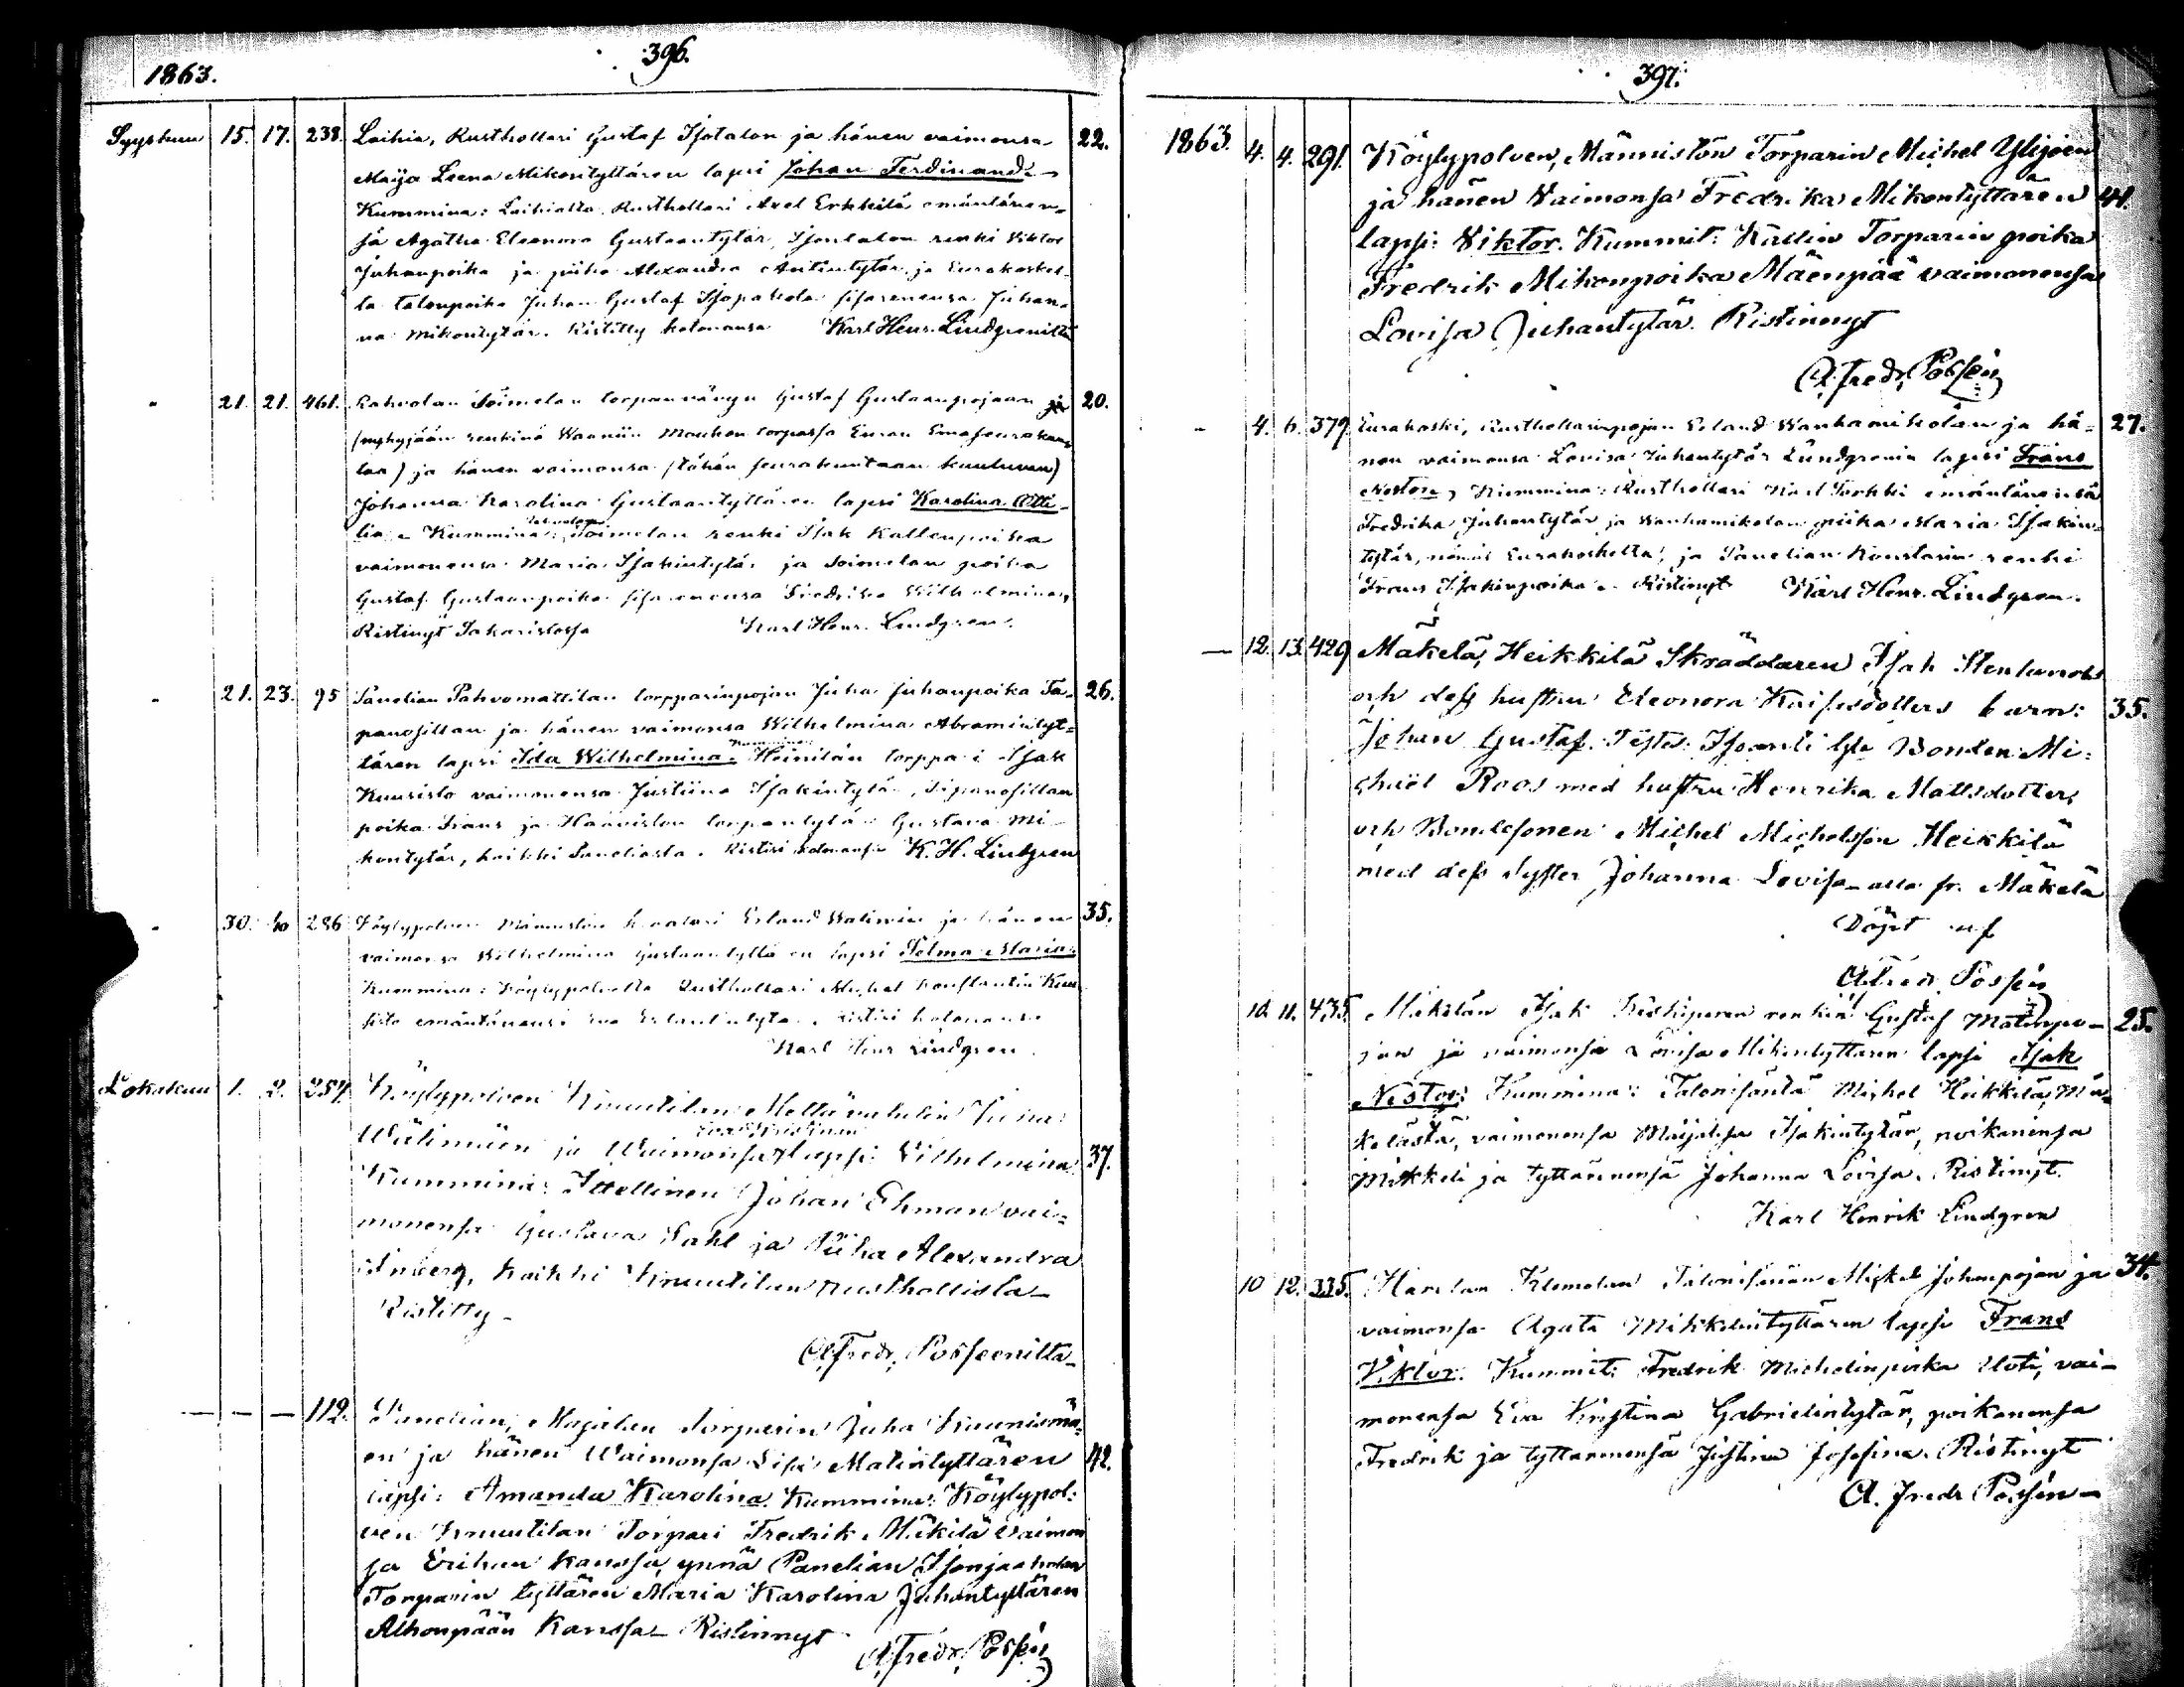 396.
1863.
Syyskuu 15. 17. 238. Laihia, Rusthollari Gustaf Isotalon ja hänen vaimonsa 22.
Maija Leena Mikontyttären lapsi Johan Ferdinand.
Kummina: Laihialta Rusthollari Axel Erkkilä emäntänen-
sä Agatha Eleonora Gustaantytär, Isontalon renki Viktor
Juhanpoika ja piika Alexandra Antintytär ja Eurakoskel-
ta talonpoika Juhan Gustaf Isopahola sisarenensa Juhan-
na Mikontytär. Ristitty kotonansa Karl Henr. Lindgreniltä
" 21. 21. 461. Rahvolan Soimelan torpan vävyn Gustaf Gustaanpojaan 20.
(nykyjään renkinä Waaniin Mouhon torpassa Euran Emäseurakun-
taa) ja hänen vaimonsa (tähän seurakuntaan kuuluvan)
Johanna Karolina Gustaantyttären lapsi Karolina Otti-
lia. Kummina: Soimelan renki Isak Kallenpoika
vaimonensa Maria Isakintytär ja Soimelan poika
Gustaf Gustaanpoika sisarenensa Fredrika Wilhelmina,
Ristinyt Sakaristossa Karl Henr. Lindgren.
" 21. 23. 95 Panelian Pahvomattilan torpparinpojan Juha Juhanpoika Ta- 26.
panosillan ja hänen vaimonsa Wilhelmina Abramintyt-
tären lapsi Ida Wilhelmina. Kummina: Heinilän torppari Isak
Kuusisto vaimonensa Justiina Isakintytär, Tapanosillan
poika Frans ja Haaviston torpantytär Gustava Mi-
kontytär, kaikki Paneliasta. Ristisi kotonansa K. H. Lindgren
" 30. 286 Köylypolven Männistön Erland Walinin ja hänen 35.
vaimonsa Wilhelmina Gustaantyttären lapsi Selma Maria.
Kummina: Köylypolvelta Rusthollari Michel Konstantin Kuu-
sisto emäntänensä Eva Erlandintytär. Ristisi kotonansa
Karl Henr Lindgren.
Lokakuu 1. 2. 257. Köylypolven Knuutilan Juha
Wälimäen ja Waimonsa Eva Kristinan lapsi: Vilhelmina 37.
Kummina: Itellinen Johan Ehman vai-
monensa Gustava Dahl ja Piika Alexandra
kaikki Knuutilan rusthollista
Ristitty
A. Fredr. Posseenilta
— — — 112. Panelian, Majalan Torparin Juha Kaunismä-
en ja hänen Waimonsa Lisa Matintyttären 42.
lapsi: Amanda Karolina. Kummina: Köylypol-
ven Knuutilan Torpari Fredrik Mäkilä Vaimon
sa Erikan kanssa, ynnä Panelian Isonjaakolan
Torparin tyttären Maria Karolina Juhantyttären
Alhonpään Kanssa Ristinnyt
A. Fredr. Possén
397.
1863. 4. 4. 291. Köylypolven, Männistön Torparin Michel Ylijoen
ja hänen Vaimonsa Fredrika Mikontyttären 41.
lapsi: Viktor. Kummit: Kallin Torparin poika
Fredrik Mikonpoika Mäenpää vaimonensa
Lovisa Juhantytär. Ristinnyt
A. Fredr. Possén
" 4. 6. 379. Eurakoski, Rusthollarinpojan Erland Wanhamikolan ja hä- 27.
nen vaimonsa Lovisa Juhantytär Lundgrenin lapsi Frans
Nestor, Kummina: Rusthollari Karl Torkki emäntänensä
Fredrika Juhantytär ja Wanhamikolan piika Maria Isakin-
tytär, nämät Eurakoskelta, ja Panelian Konstarin renki
Frans Isakinpoika. Ristinyt Karl Henr. Lindgren.
— 12. 13. 429 Mäkelä, Heikkilä Skräddaren Isak Stenlunds
och dess hustru Eleonora Kaisasdotters barn: 35.
Johan Gustaf. Testes: Bonden Mi-
chael Roos med hustru Henrika Mattsdotter,
och Bondesonen Michel Michelsson Heikkilä
med dess syster Johanna Lovisa alla fr. Mäkelä
Döpt af
A. Fredr. Possén
10. 11. 435. Mäkilän Isak renkin Gustaf Matinpo- 25.
jan ja vaimonsa Lovisa Mikontyttären lapsi Isak
Nestor: Kummina: Talonisäntä Michel Heikkilä, Mä-
kelästä, vaimonensa Maijalisa Isakintytär, poikanensa
Mikkeli ja tyttärinensä Johanna Lovisa. Ristinyt.
Karl Henrik Lindgren
10 12. 335. Harolan Klemolan Talonisännän Mickel Johanpojan ja 34.
vaimonsa Agata Mikkelintyttären lapsi Frans
Viktor. Kummit: Fredrik Michelinpoika Uoti, vai-
monensa Eva Kristina Gabrielintytär, poikanensa
Fredrik ja tyttärinensä Justina Josefina. Ristinyt
A. Fredr Possén